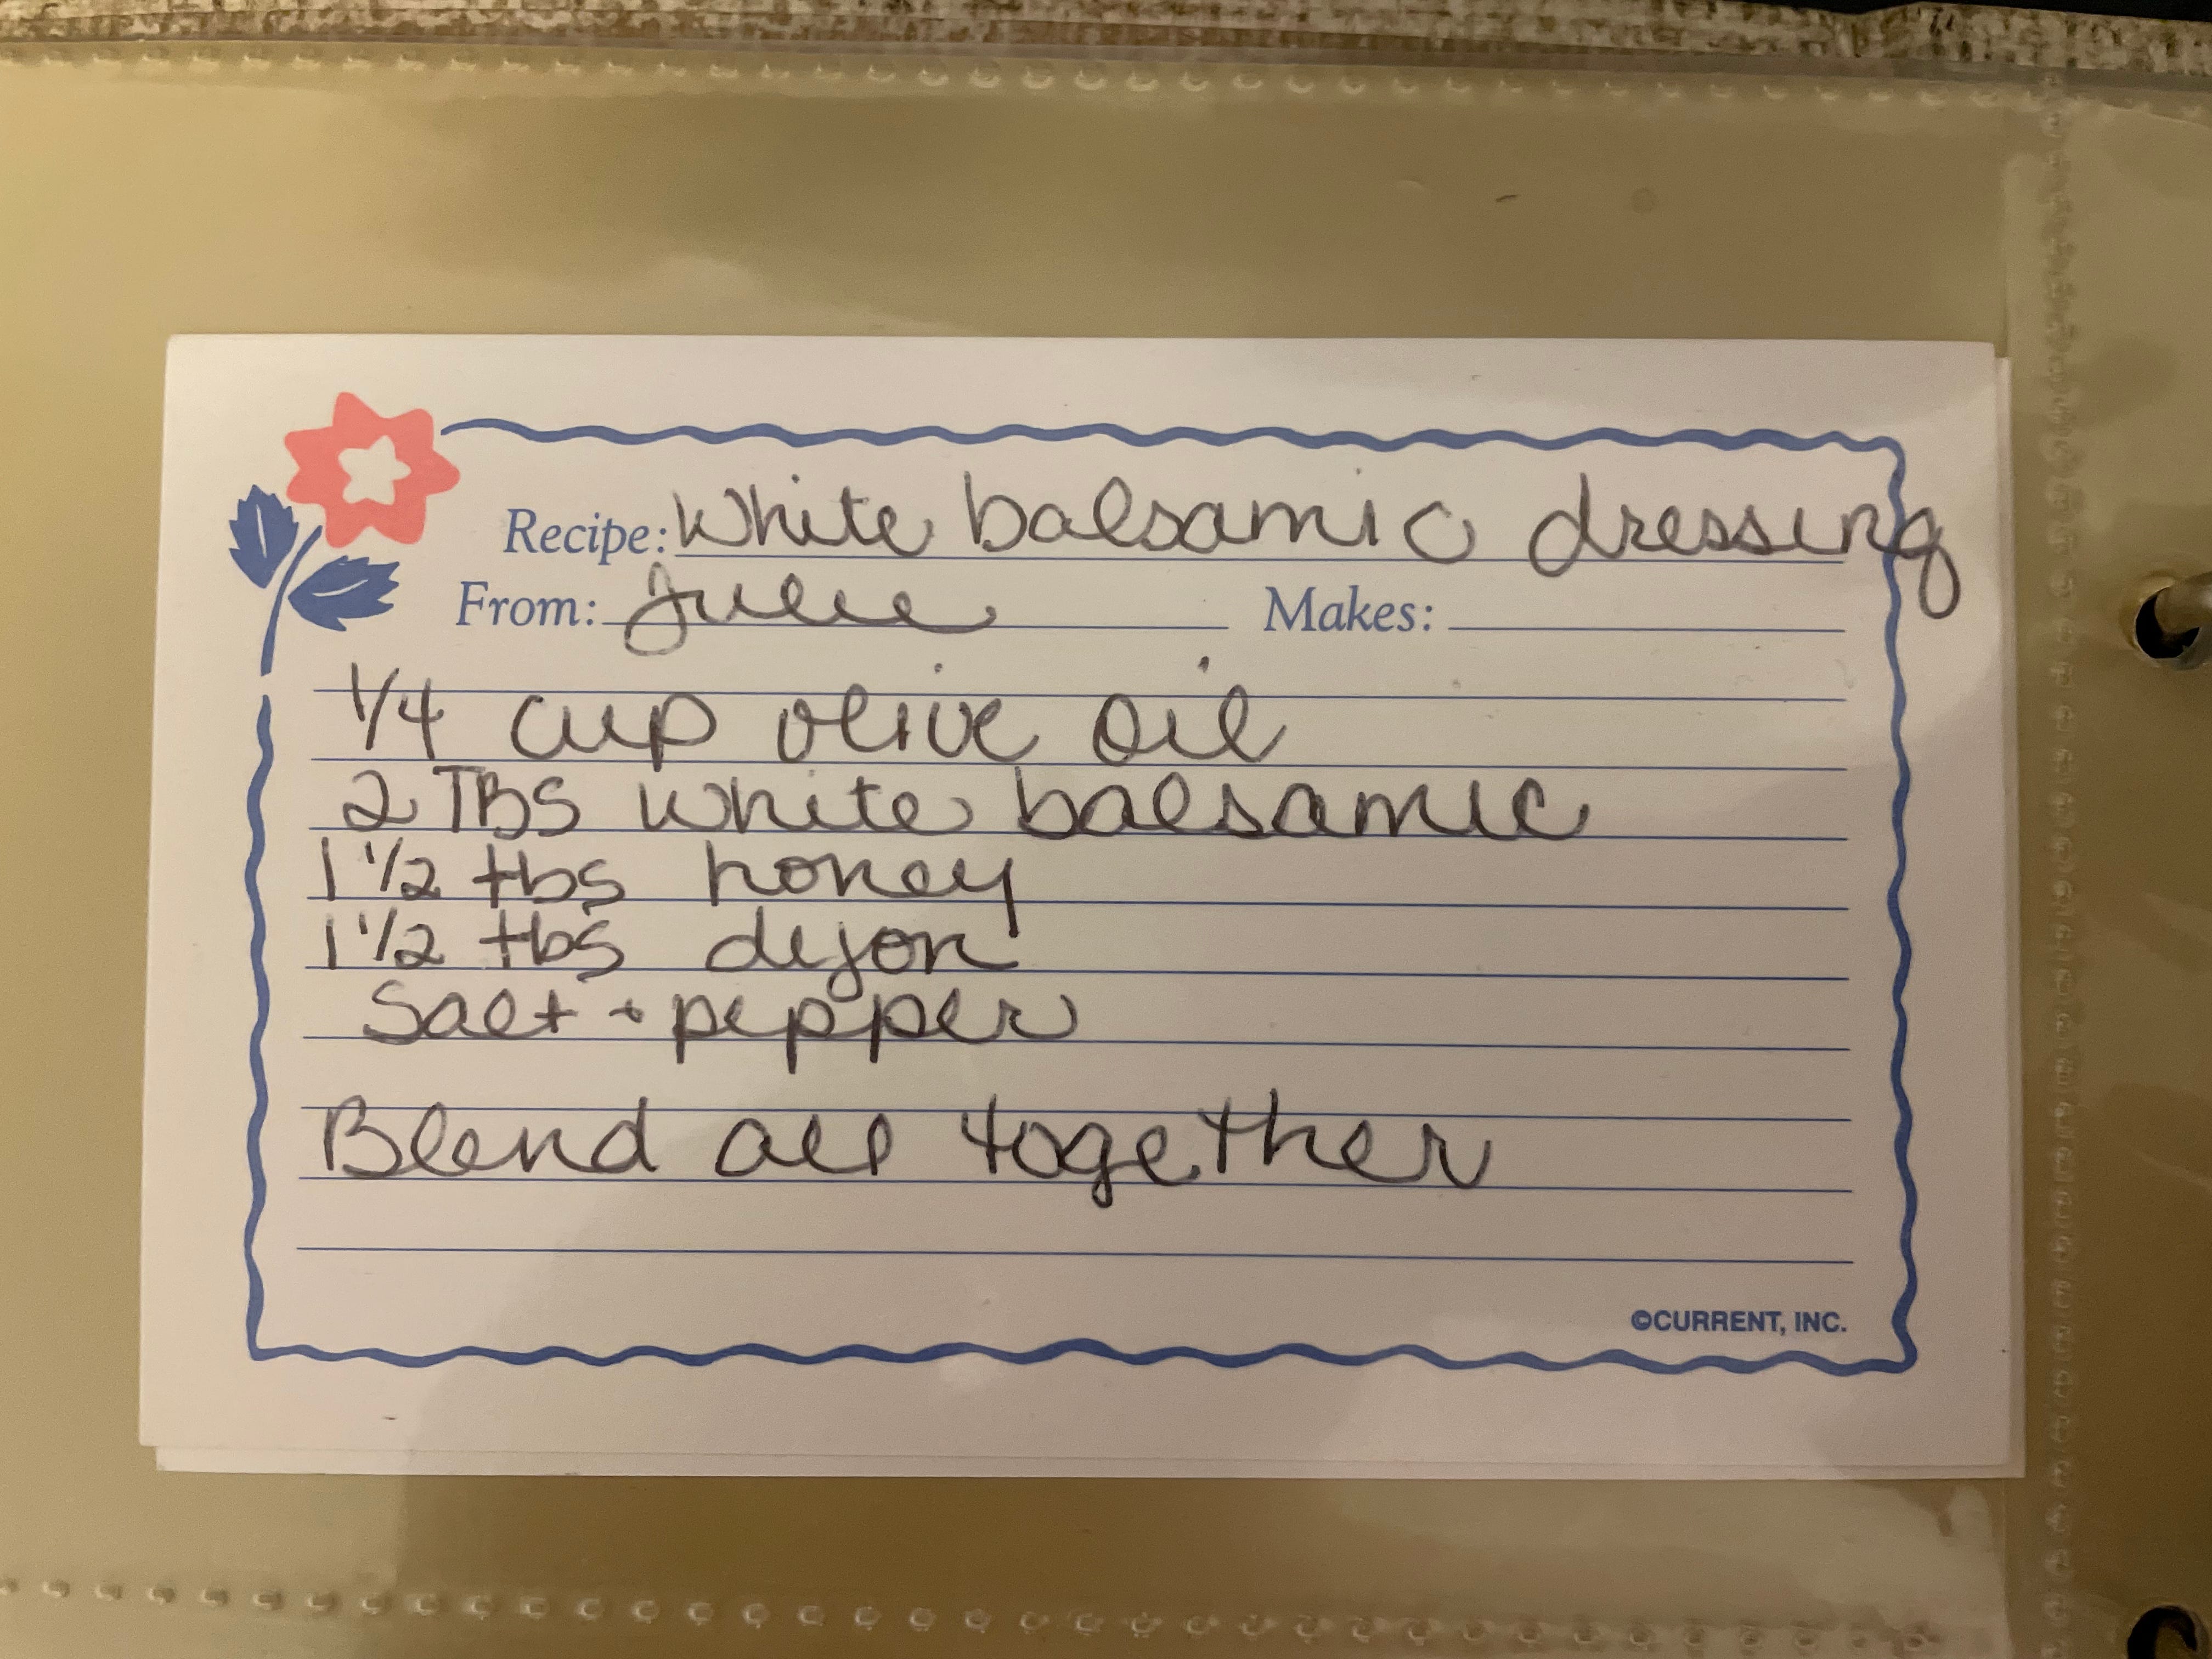 Recipe: White balsamic dressing
From: Julie Makes:
1/4 cup olive oil
2 TBS white balsamic
1 1/2 tbs honey
1 1/2 tbs dijon
Salt + pepper
Blend all together
©CURRENT, INC.